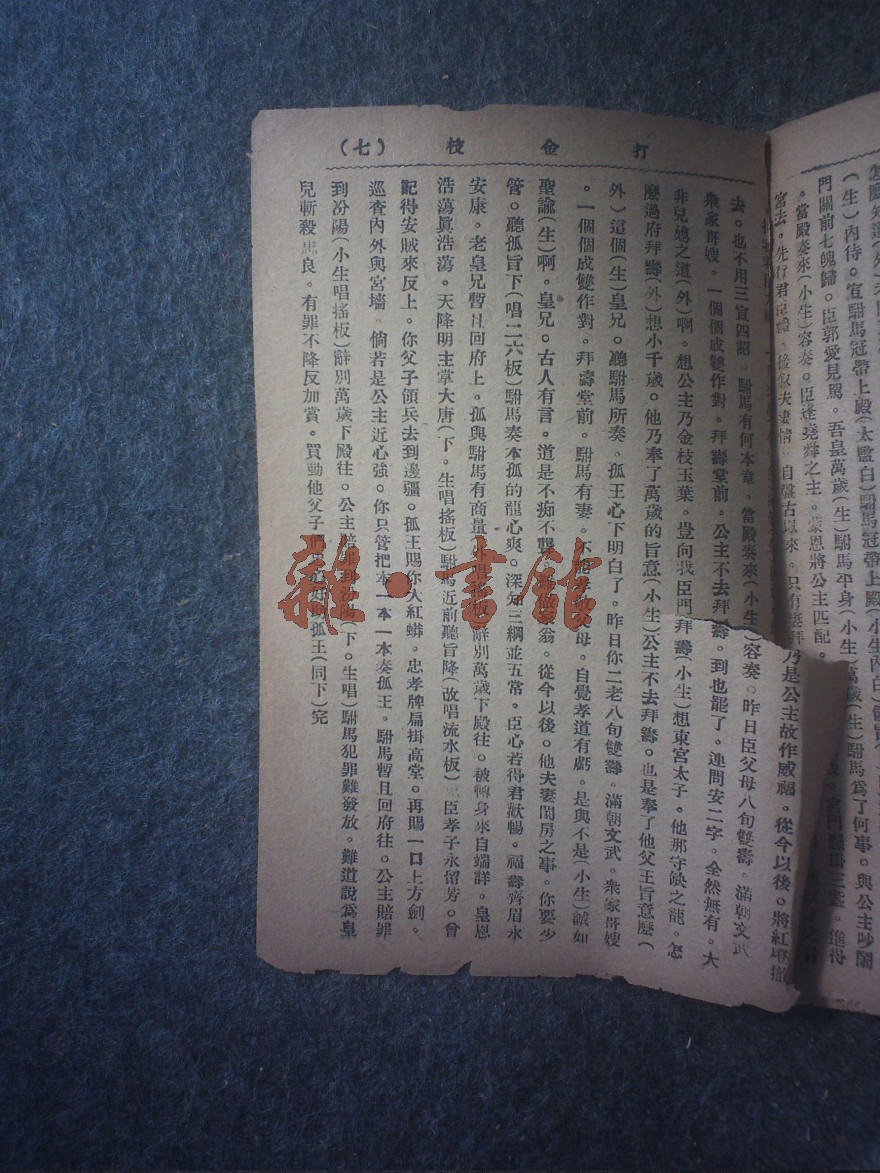 打金枝　（七）
門關前七魄歸。臣郭愛見駕。吾皇萬歲（生）駙馬平身（小生）萬歲（生）駙馬爲了何事。與公主吵鬧
。當殿奏來（小生）容奏。臣逢堯舜之主。蒙恩將公主匹配。
宮去。先行君臣禮。後敘夫妻情。自盤古以來。只有
乃是公主故作威福。從今以後。將紅燈撤
去。也不用三宣四詔。駙馬有何本章。當殿奏來（小生）容奏。昨日臣父母八旬雙壽。滿朝文武
衆家哥嫂。一個個成雙作對。拜壽堂前。公主不去拜壽。到也罷了。連問安二字。全然無有。大
非兒媳之道（外）啊。想公主乃金枝玉葉。豈向我臣門拜壽（小生）想東宮太子。他那守缺之龍。怎
麼過府拜壽（外）想小千歲。他乃奉了萬歲的旨意（小生）公主不去拜壽。也是奉了他父王旨意麼（
外）這個（生）皇兄。聽駙馬所奏。孤王心下明白了。昨日你二老八旬雙壽。滿朝文武。衆家哥嫂
。一個個成雙作對。拜壽堂前。駙馬有妻。不能孝敬父母。自覺孝道有虧。是與不是（小生）誠如
聖諭（生）啊。皇兄。古人有言。道是不痴不聾。翁。從今以後。他夫妻閨房之事。你要少
管。聽孤旨下（唱二六板）駙馬奏本孤的龍心爽。深知三綱並五常。臣心若得君歡暢。福壽齊眉永
安康。老皇兄暫且回府上。孤與駙馬有商量（外唱搖板）辭別萬歲下殿往。轉身來自端詳。皇恩
浩蕩眞浩蕩。天降明主掌大唐（下。生唱搖板）駙馬近前聽旨降（改唱流水板）忠臣孝子永留芳。曾
記得安賊來反上。你父子領兵去到邊疆。孤王賜你大紅蟒。忠孝牌扁掛高堂。再賜一口上方劍。
巡查內外與宮墻。倘若是公主近心強。你只管把本一本一本奏孤王。駙馬暫且回府往。公主賠罪
到汾陽（小生唱搖板）辭別萬歲下殿往。公主賠罪到汾陽（下。生唱）駙馬犯罪難發放。難道說爲皇
兒斬殺忠良。有罪不降反加賞。買動他父子們忠心好助孤王（同下）完
雜·書館